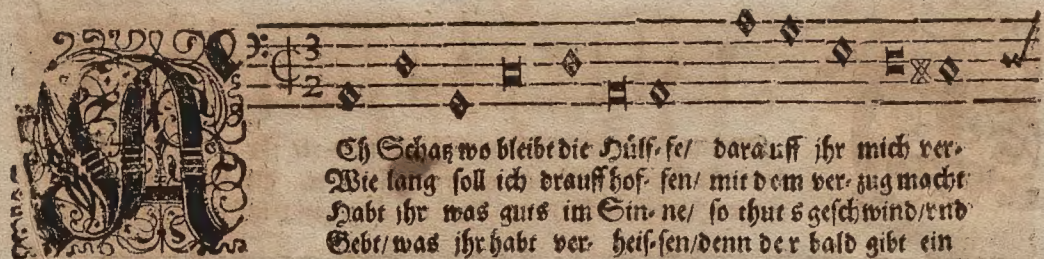 ACh Schatz wo bleibt die Hülf-fe/ darauff jhr mich ver-
Wie lang soll ich drauff hof-fen/ mit dem ver-zug macht
Habt jhr was guts im Sin-ne/ so thuts geschwind/vnd
Gebt/was jhr habt ver-heis-sen/denn der bald gibt ein